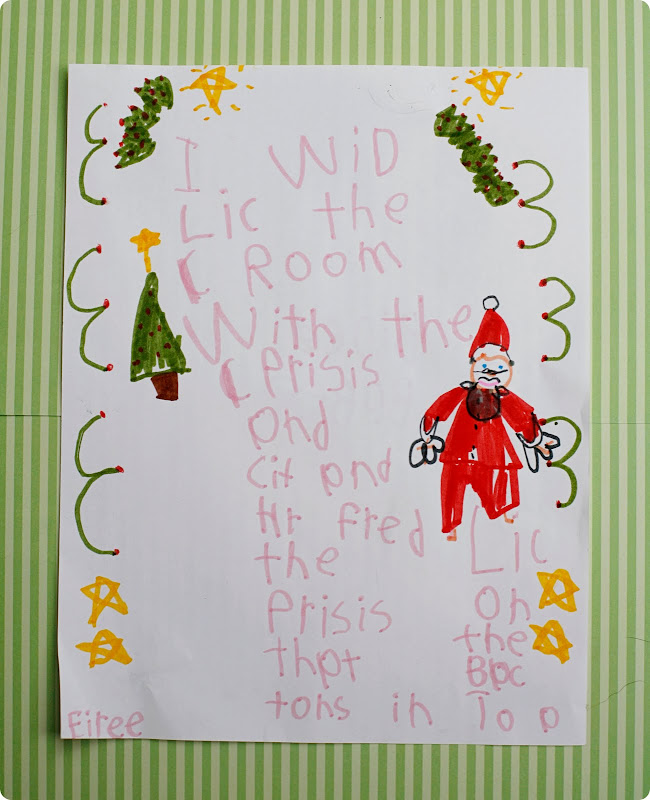 I WiD
Lic the
C ROOM
With the
C Prisis
And
Cit And
Hr Fred Lic
the
Prisis On
thAt the
BAC
tons in To p
Eiree